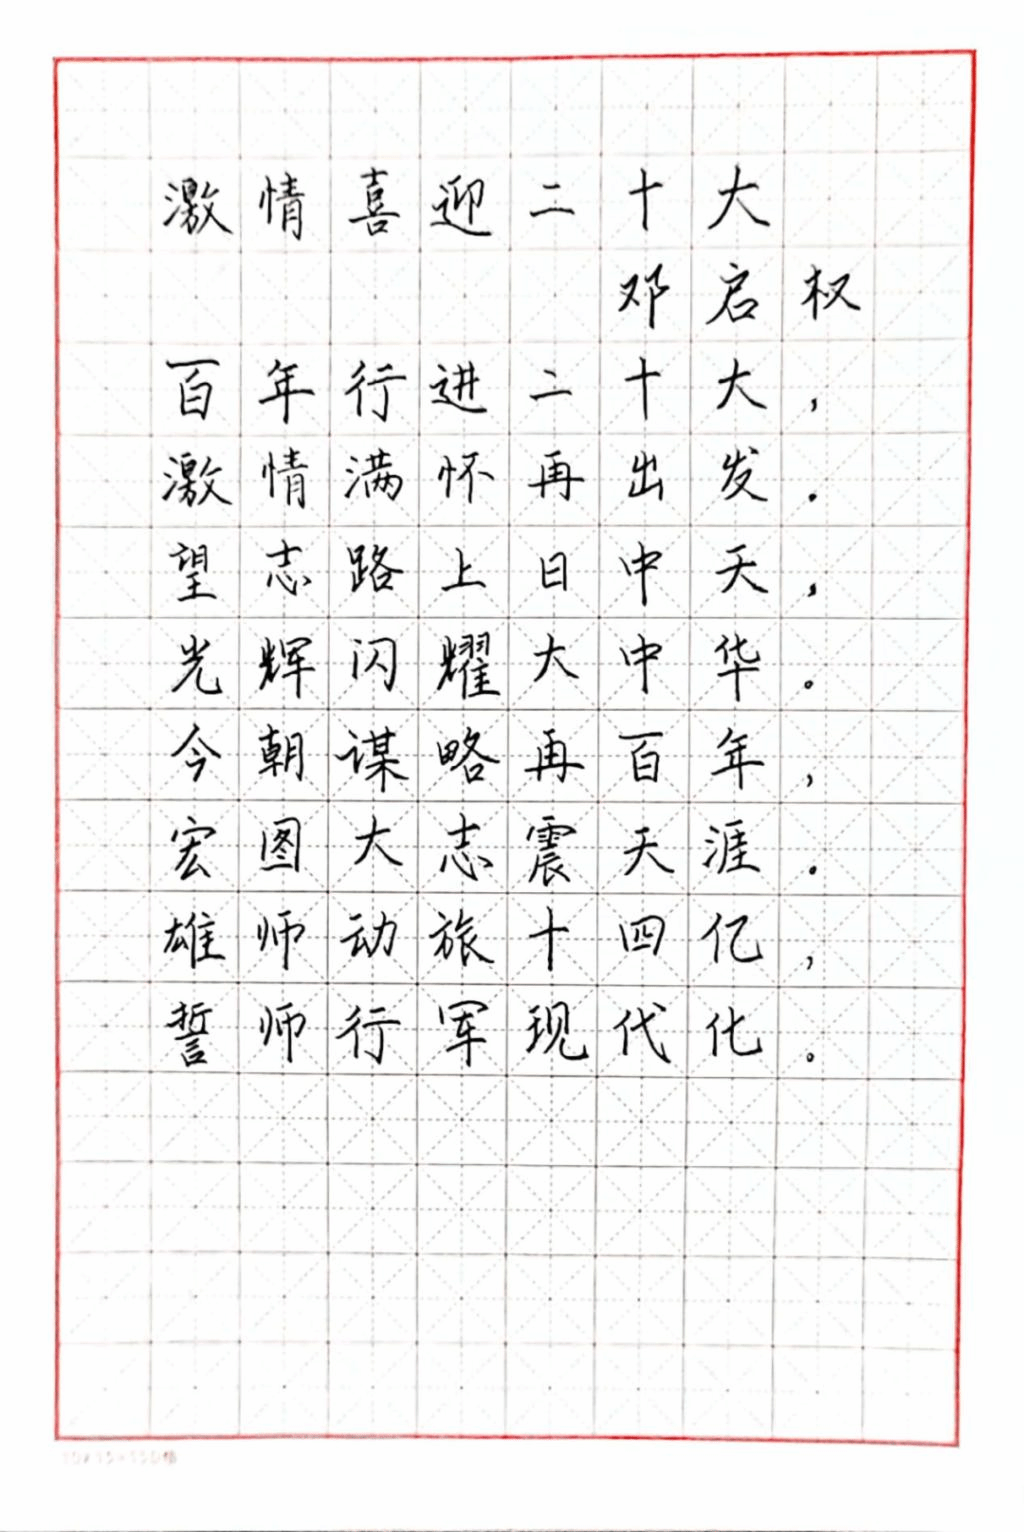 激情喜迎二十大
邓启权
百年行进二十大，
激情满怀再出发.
望志路上日中天，
光辉闪耀大中华。
今朝谋略再百年，
宏图大志震天涯.
雄师动旅十四亿，
誓师行军现代化。
10×15=150格